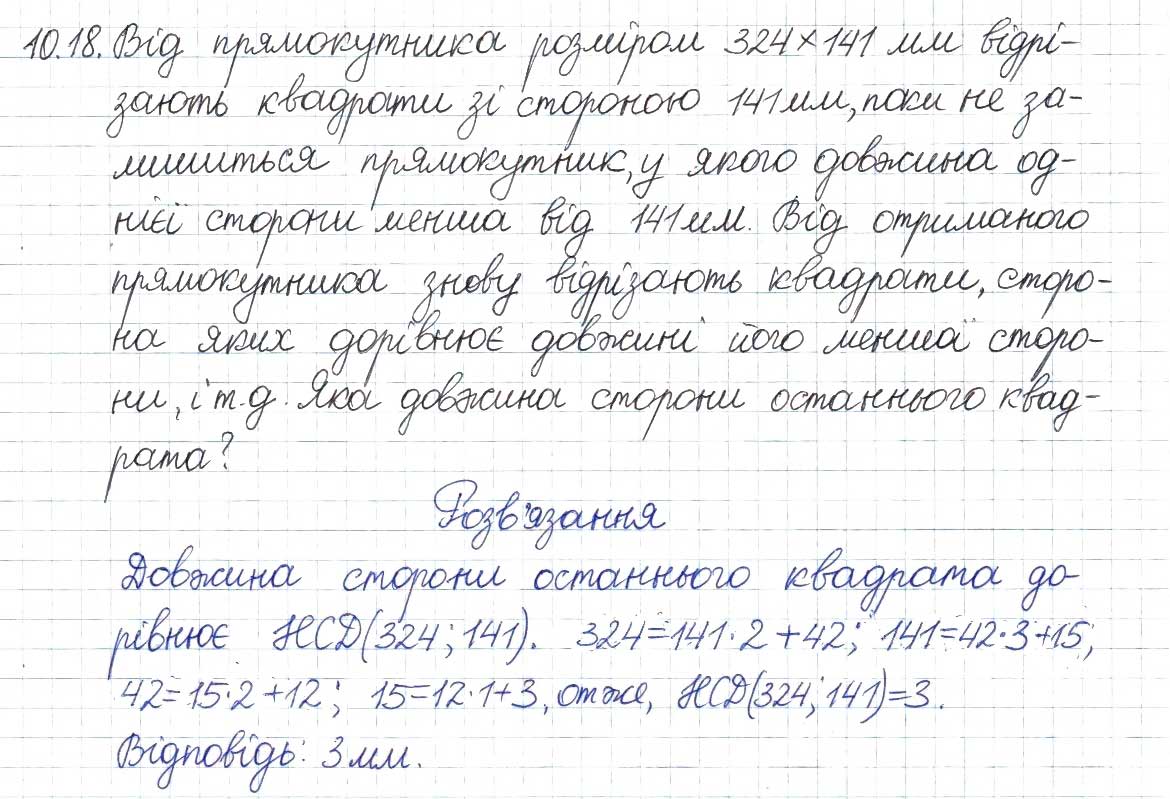 10.18. Від прямокутника розміром 324×141 мм відрі-
зають квадрати зі стороною 141 мм, поки не за-
лишиться прямокутник, у якого довжина од-
нієї сторони менша від 141 мм. Від отриманого
прямокутника знову відрізають квадрати, сторо-
на яких дорівнює довжині його меншої сторо-
ни, і т.д. Яка довжина сторони останнього квад-
рата?
Розв'язання
Довжина сторони останнього квадрата до-
рівнює НСD(324; 141). 324=141·2+42; 141=42·3+15;
42=15·2+12; 15=12·1+3, отже, НСD(324; 141)=3.
Відповідь: 3 мм.